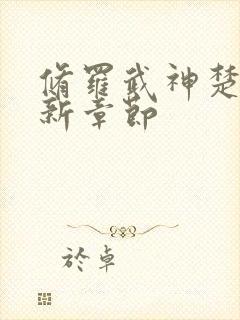 脩羅武神楚
新章節
於卓